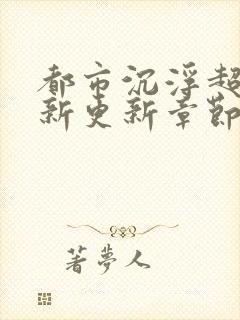 都市沉浮超
新更新章節
著夢人